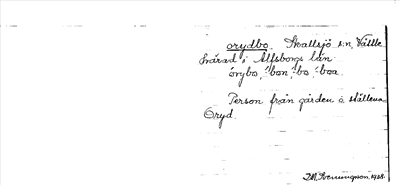 orydbo. Skallsjö s:n, Vättle
härad i Älfsborgs län
órybo, -́bon, -́bo, -́boa
Person från gården o. ställena
Oryd.
1928.